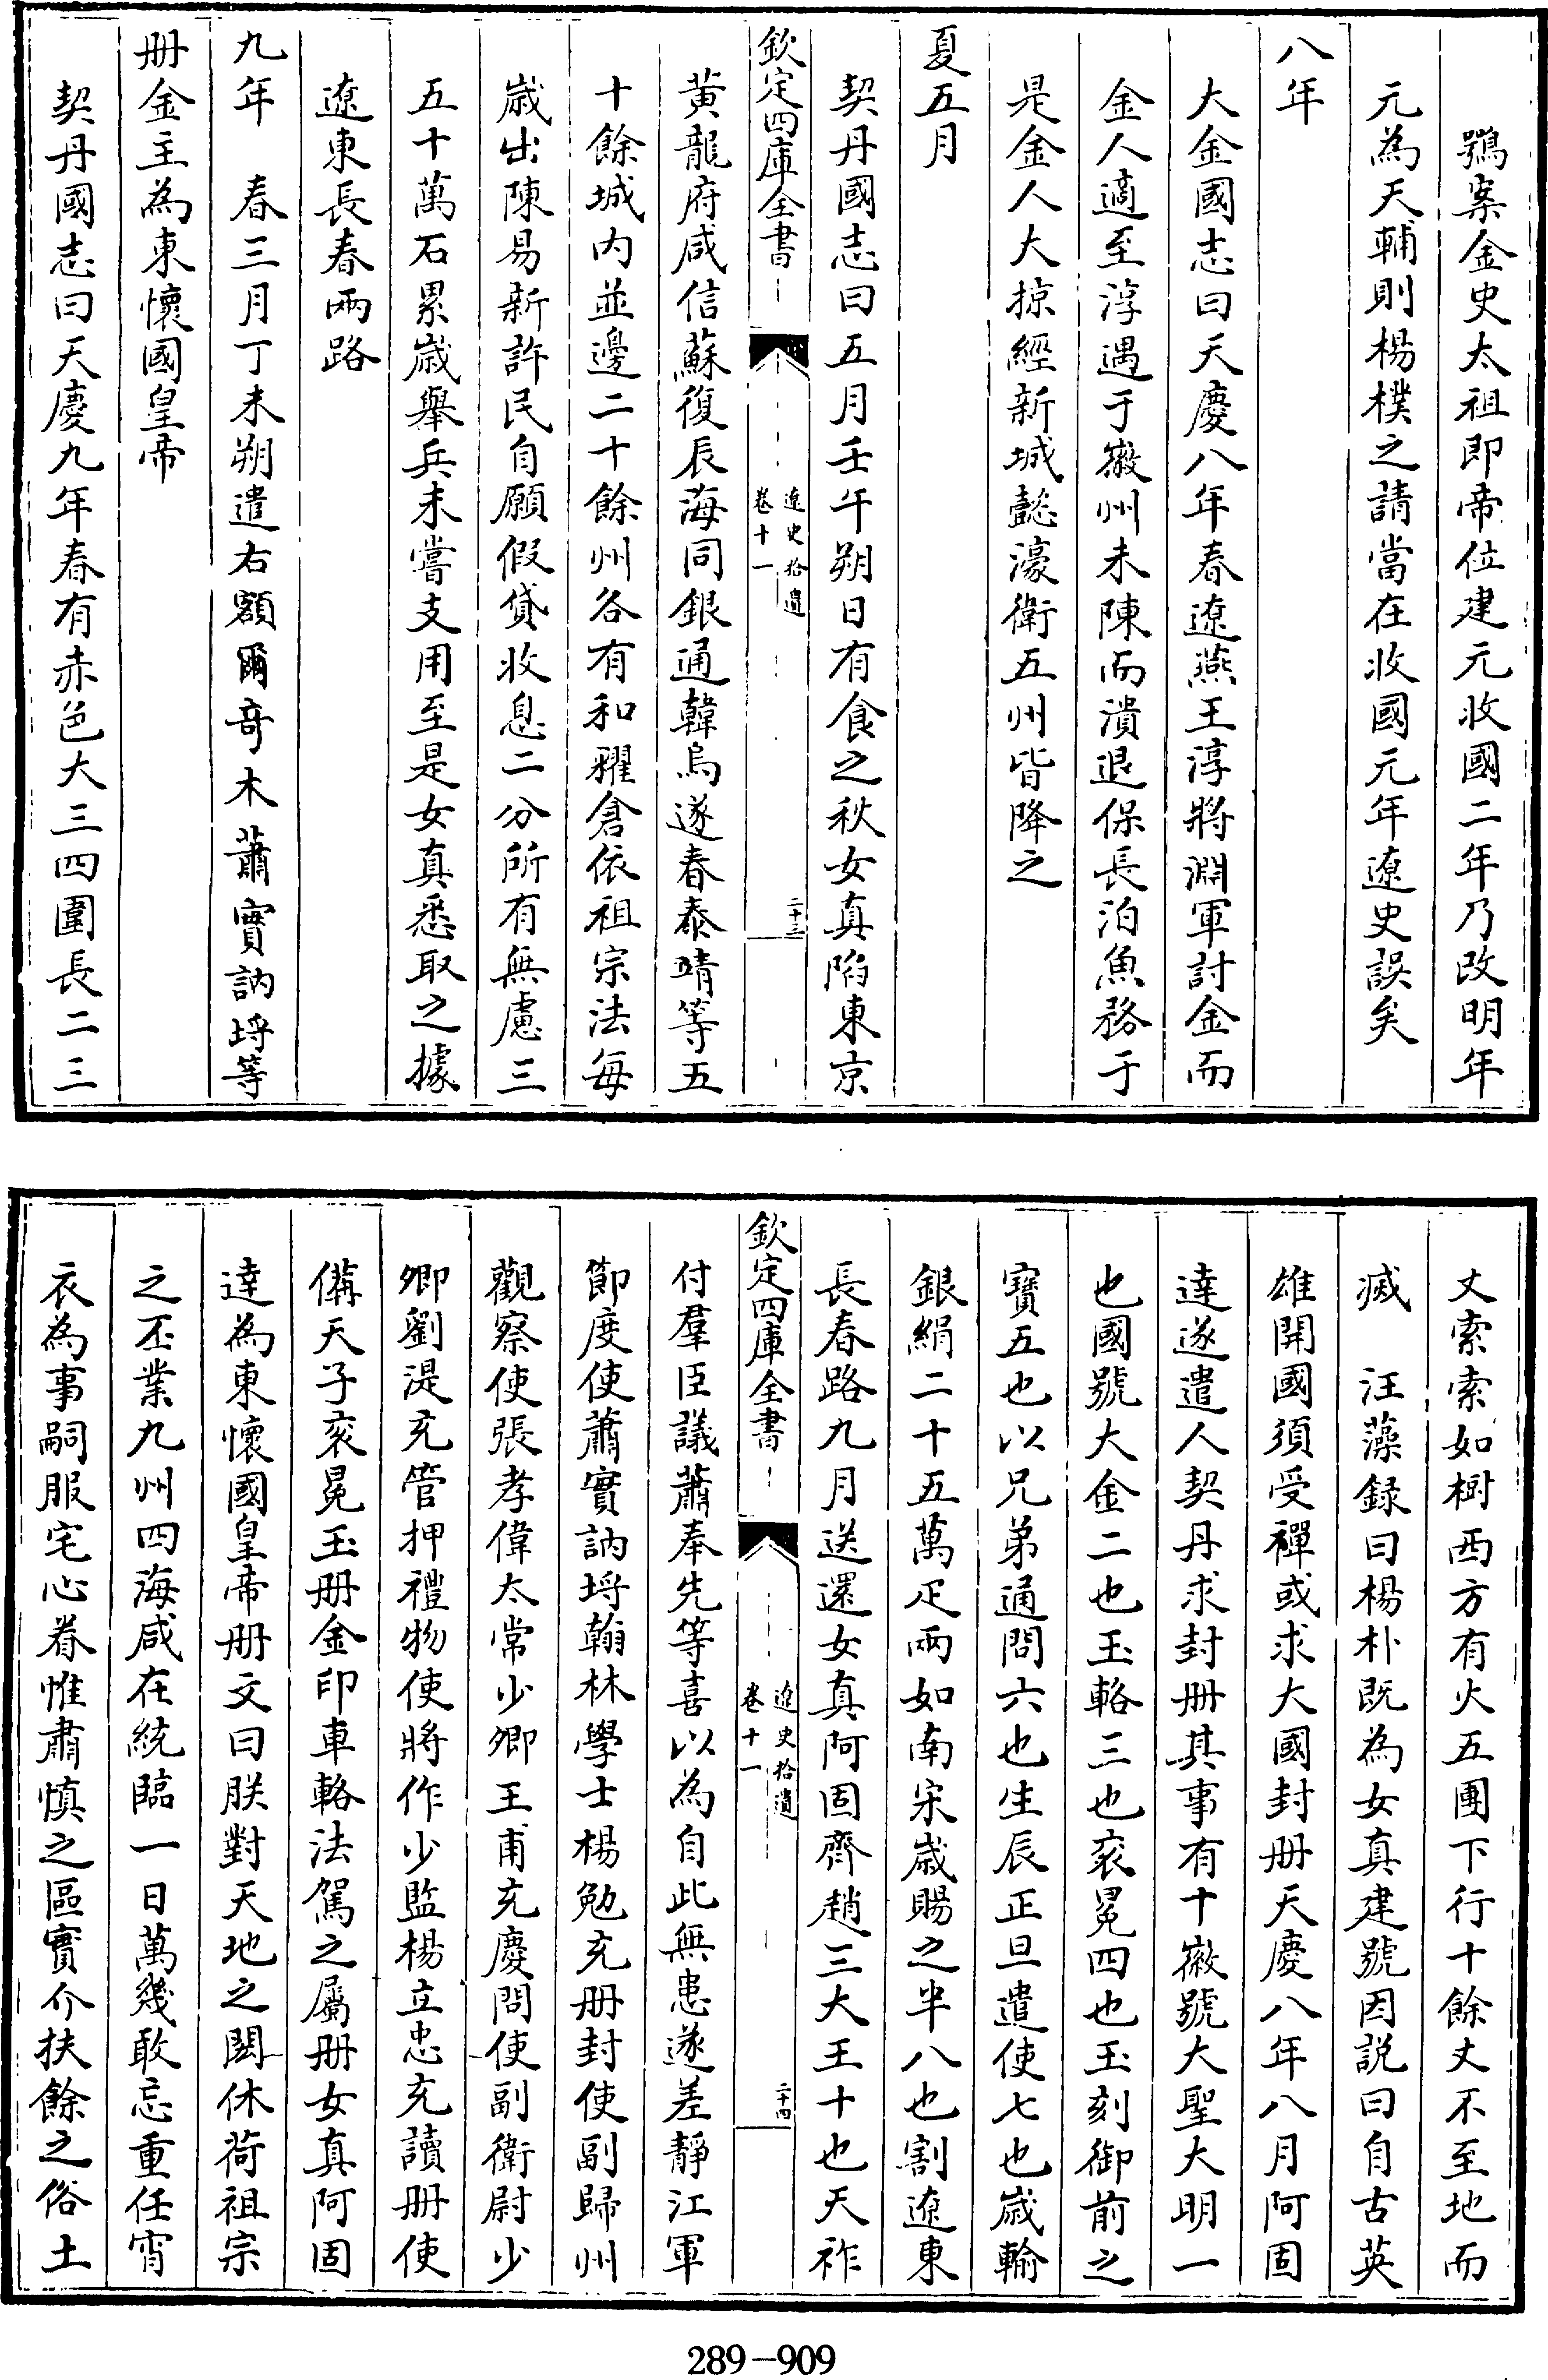 鶚案金史太祖即帝位建元收國二年乃改明年
元為天輔則楊樸之請當在收國元年遼史誤矣
八年
大金國志曰天慶八年春遼燕王淳將淵軍討金而
金人適至淳遇于徽州未陳而潰退保長泊魚務于
是金人大掠經新城懿濠衛五州皆降之
夏五月
契丹國志曰五月壬午朔日有食之秋女真陷東京
欽定四庫全書
遼史拾遺
卷十一
二十三
黄龍府咸信蘇復辰海同銀通韓烏遂春泰靖等五
十餘城内並邊二十餘州各有和糴倉依祖宗法每
歳出陳易新許民自願假貸收息二分所有無慮三
五十萬石累歳舉兵未嘗支用至是女真悉取之據
遼東長春兩路
九年　春三月丁未朔遣右額爾竒木蕭實訥埒等
册金主為東懷國皇帝
契丹國志曰天慶九年春有赤色大三四圍長二三
丈索索如樹西方有火五團下行十餘丈不至地而
滅　汪藻録曰楊朴既為女真建號因説曰自古英
雄開國須受禪或求大國封册天慶八年八月阿固
達遂遣人契丹求封册其事有十徽號大聖大明一
也國號大金二也玉輅三也衮冕四也玉刻御前之
寶五也以兄弟通問六也生辰正旦遣使七也歳輸
銀絹二十五萬疋兩如南宋歳賜之半八也割遼東
長春路九月送還女真阿固齊趙三大王十也天祚
欽定四庫全書
遼史拾遺
卷十一
二十四
付羣臣議蕭奉先等喜以為自此無患遂差靜江軍
節度使蕭實訥埒翰林學士楊勉充册封使副歸州
觀察使張孝偉太常少卿王甫充慶問使副衛尉少
卿劉湜充管押禮物使將作少監楊立忠充讀册使
備天子衮冕玉册金印車輅法駕之屬册女真阿固
達為東懷國皇帝册文曰朕對天地之閎休荷祖宗
之丕業九州四海咸在統臨一日萬幾敢忘重任宵
衣為事嗣服宅心眷惟肅慎之區實介扶餘之俗土
289-909